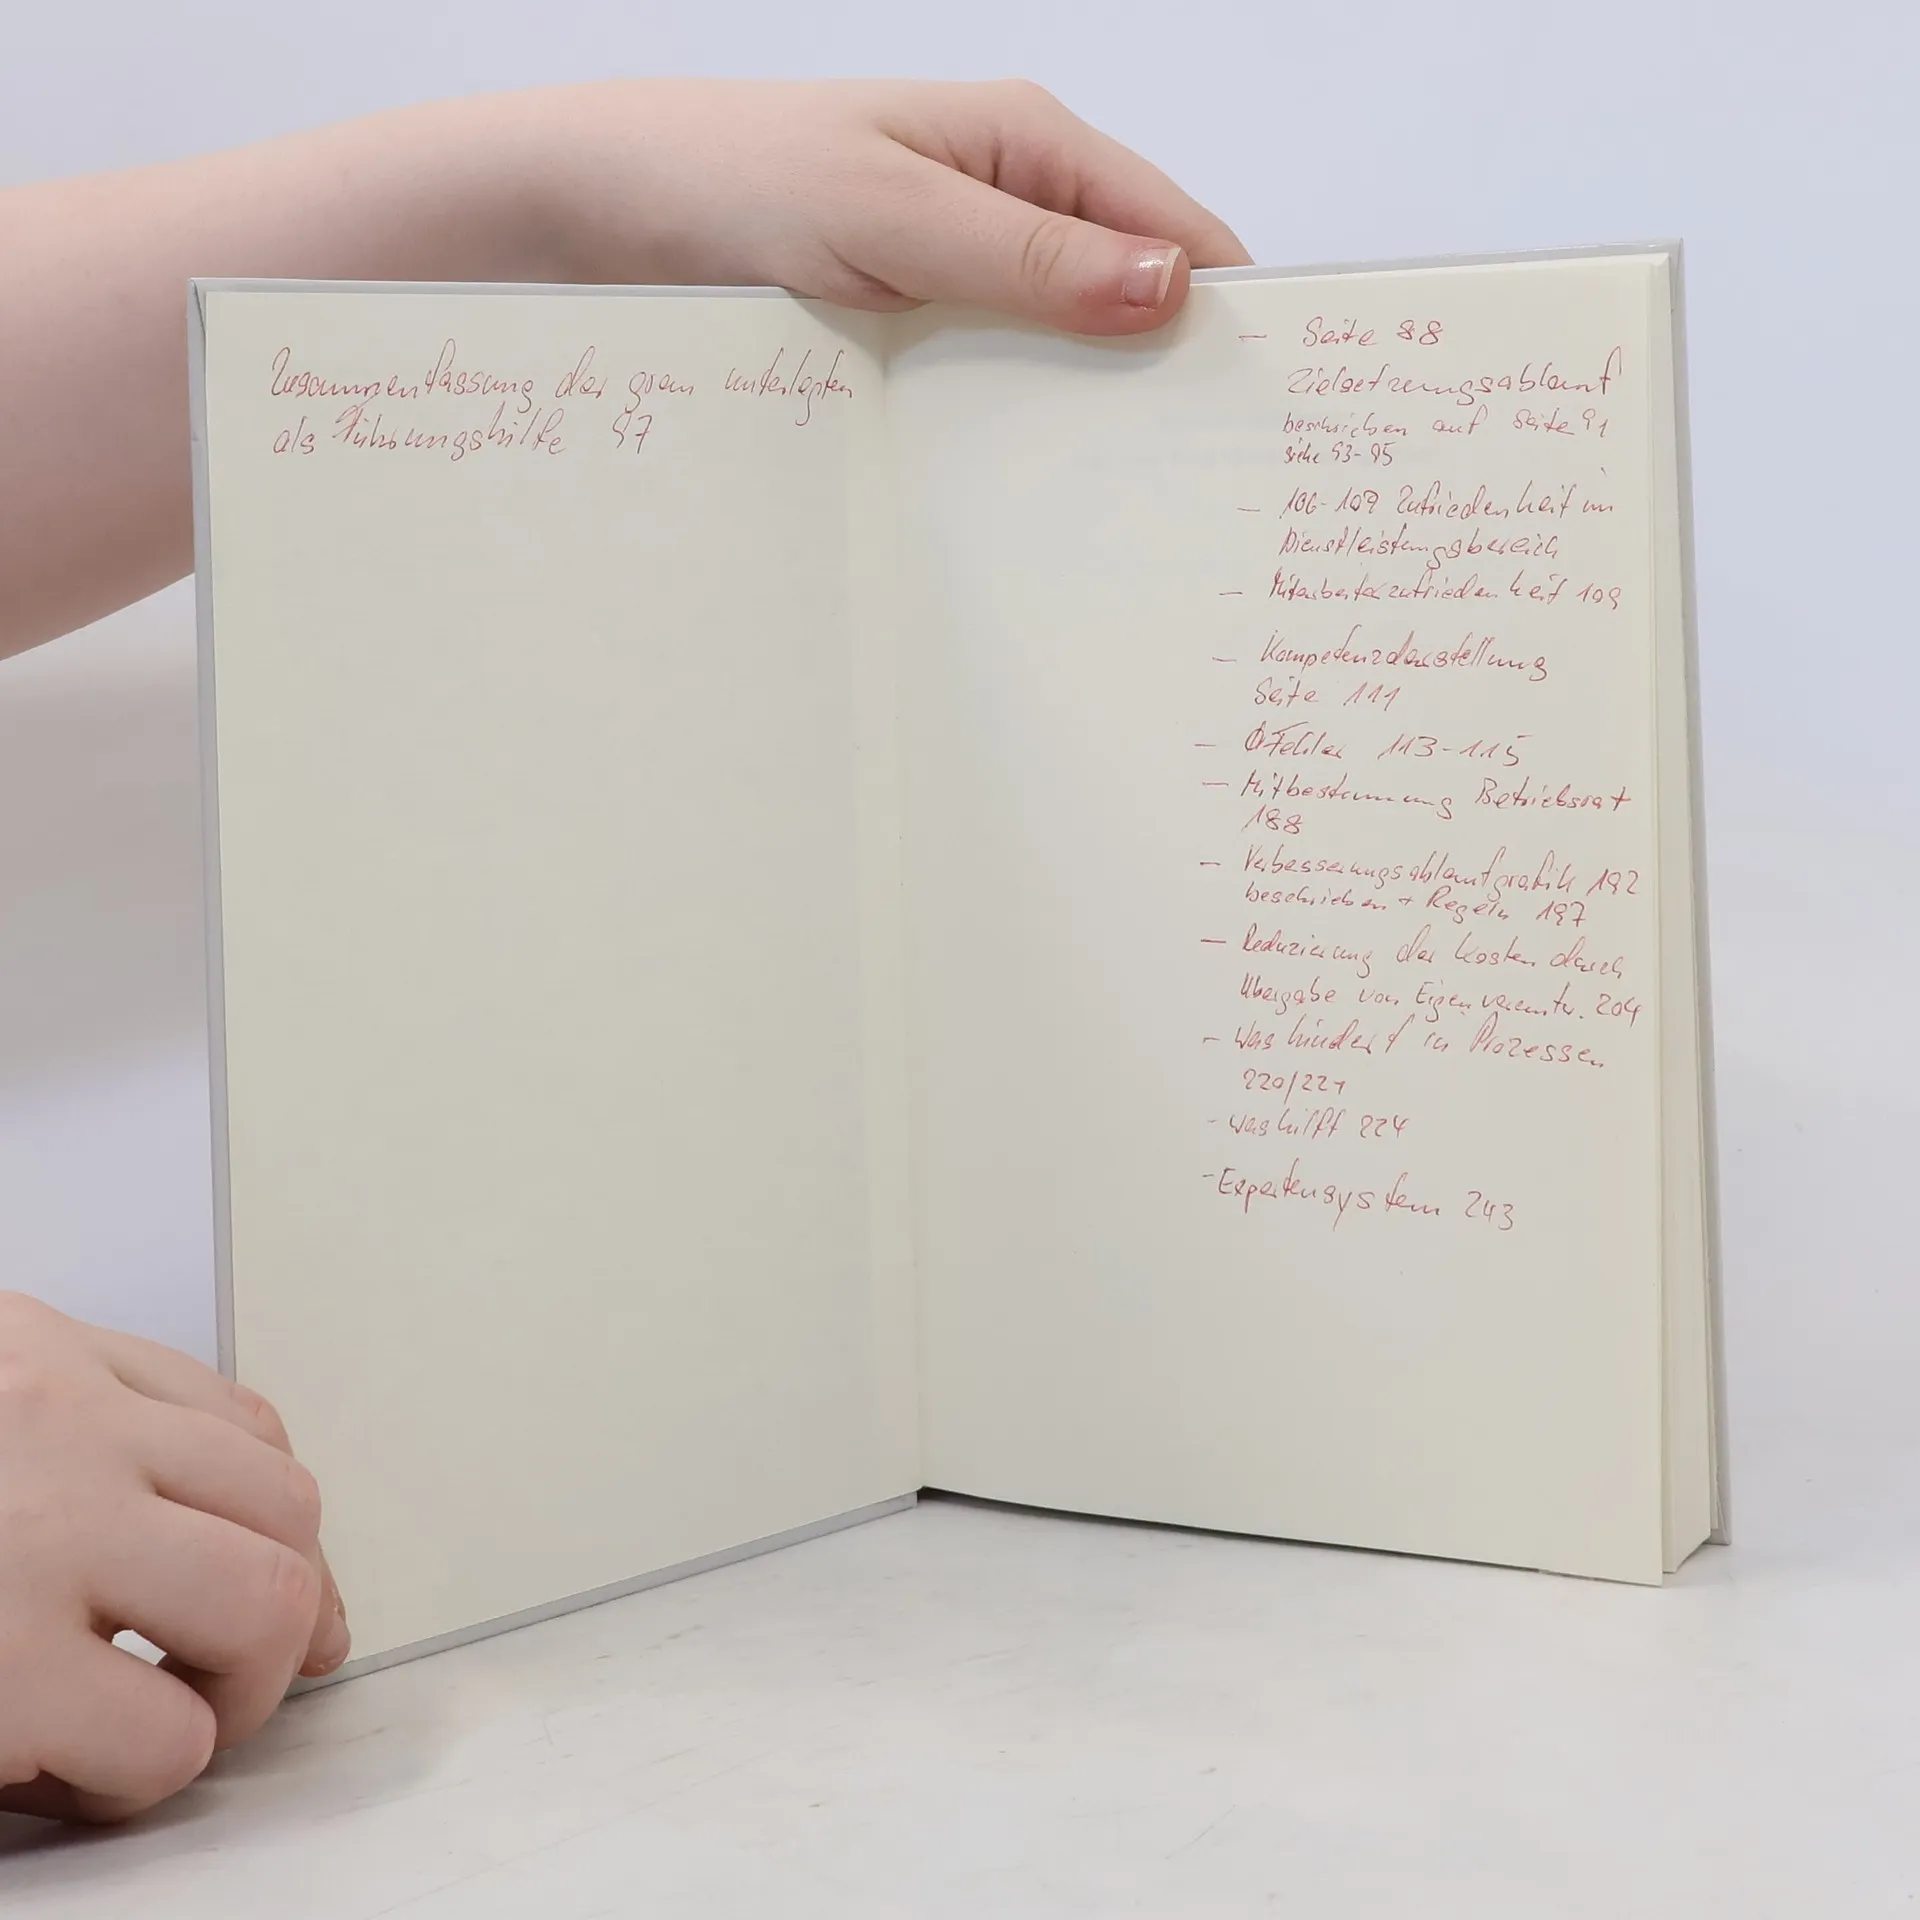 Zusammenfassung der grau unterlegten
als Führungshilfe 97
- Seite 88
Zielsetzungsablauf
beschrieben auf Seite 91
siehe 93-95
- 106-109 Zufriedenheit im
Dienstleistungsbereich
- Mitarbeiterzufriedenheit 109
- Kompetenzdarstellung
Seite 111
- Fehler 113-115
- Mitbestimmung Betriebsrat
188
- Verbesserungsablaufgrafik 192
beschrieben + Regeln 197
- Reduzierung der Kosten durch
Übergabe von Eigenverantw. 204
- Was hindert in Prozessen
220/221
- was hilft 224
- Expertensystem 243